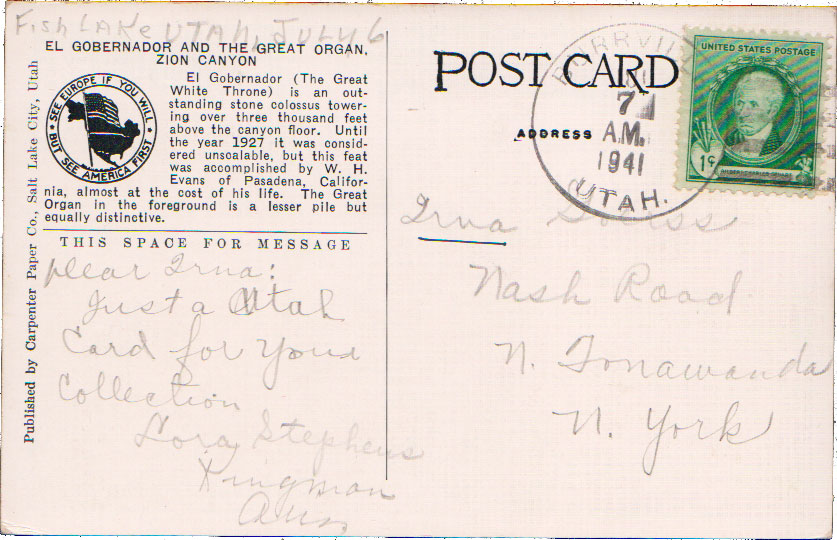 Fish LAke UTAH, JULY 6
EL GOBERNADOR AND THE GREAT ORGAN,
ZION CANYON
SEE EUROPE IF YOU WILL
BUT SEE AMERICA FIRST
El Gobernador (The Great
White Throne) is an out-
standing stone colossus tower-
ing over three thousand feet
above the canyon floor. Until
the year 1927 it was consid-
ered unscalable, but this feat
was accomplished by W. H.
Evans of Pasadena, Califor-
nia, almost at the cost of his life. The Great
Organ in the foreground is a lesser pile but
equally distinctive.
Published by Carpenter Paper Co., Salt Lake City, Utah
THIS SPACE FOR MESSAGE
Dear Irna:
Just a Utah
Card for your
Collection
Lora Stephens
Kingman
POST CARD
ADDRESS
7
A.M.
1941
UTAH.
UNITED STATES POSTAGE
1¢
Irna
Nash Road
N. Tonawanda
N. York